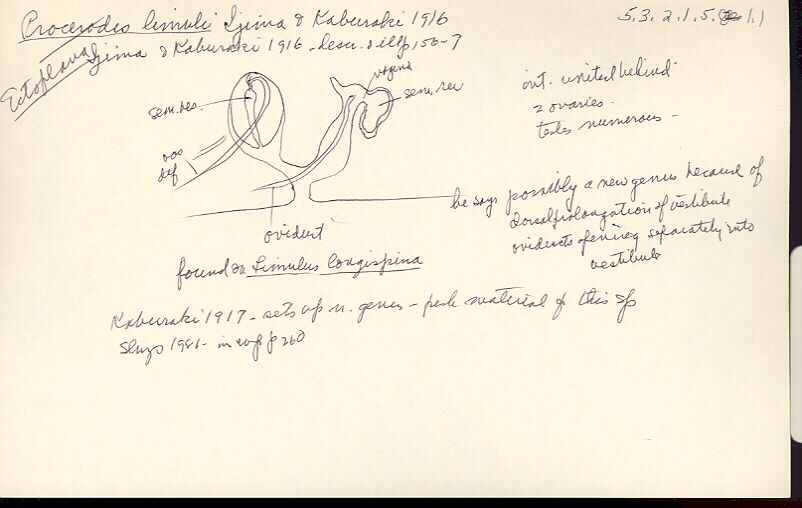 Procerodes limuli Ijima & Kaburaki 1916
5.3.2.1.5. 1.1
Ectoplana
Ijima & Kaburaki 1916 - descr. & ill p 156-7
vagina
sem. rec
sem. ves.
vas
def
oviduct
int. united behind
2 ovaries
testes numerous -
he says possibly a new genus because of
dorsal prolongation of vestibule
oviducts opening separately into
vestibule
found on Limulus longispina
Kaburaki 1917 - sets up n. genus - fresh material of this sp
Sluys 1981 - p 260